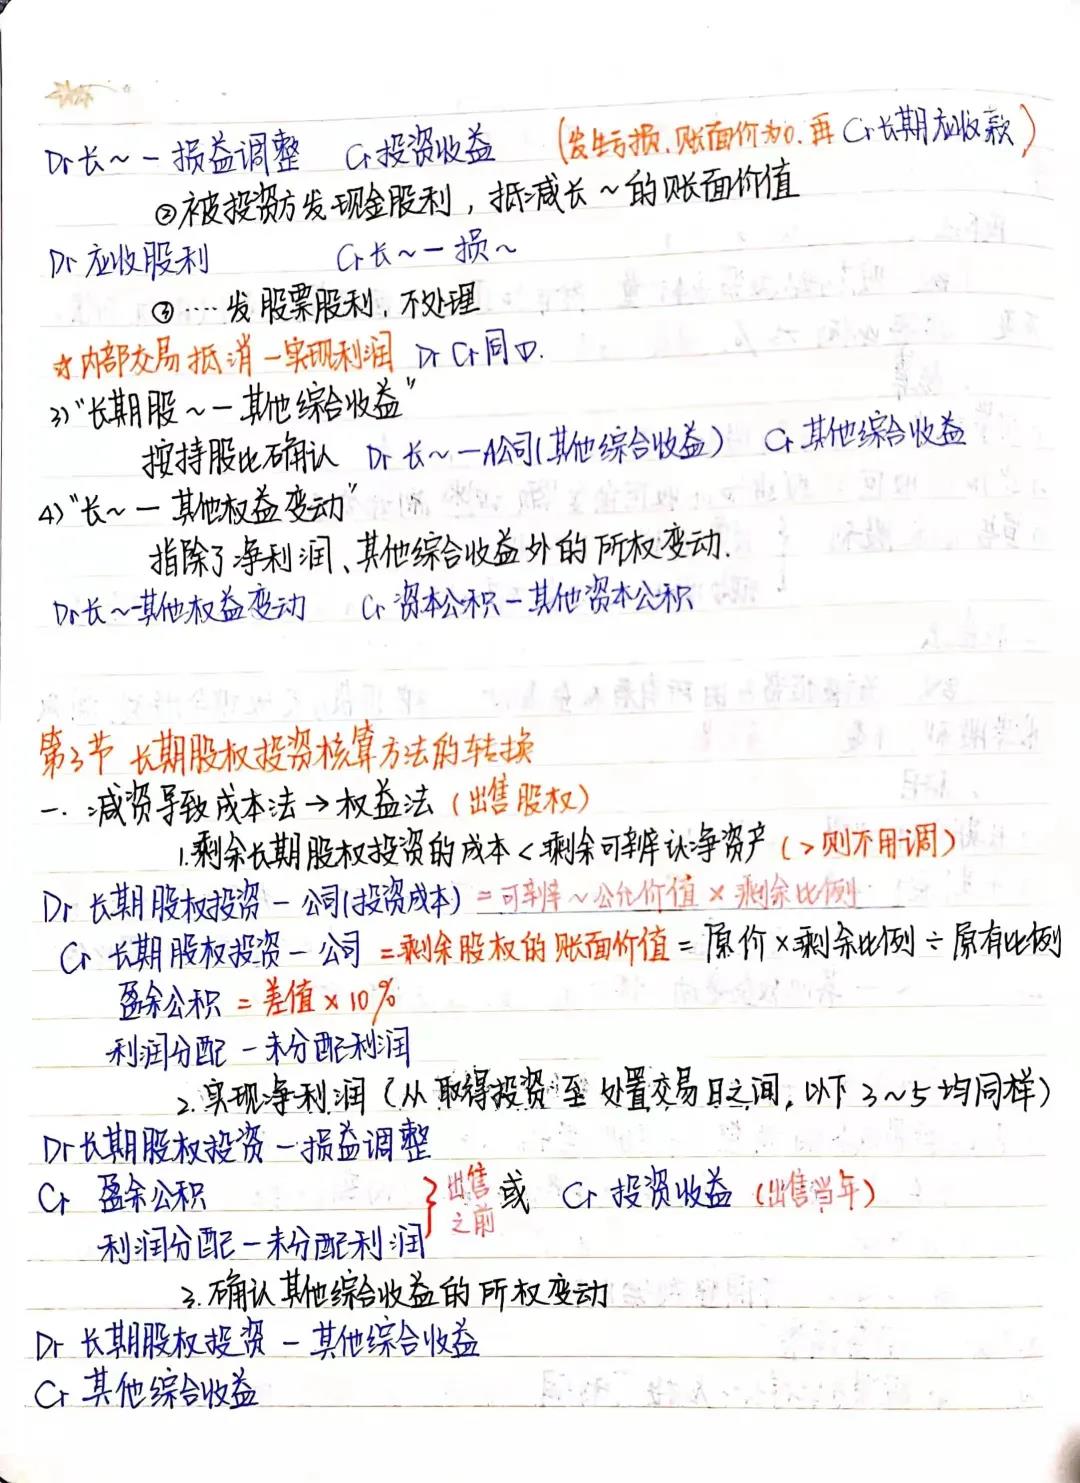 Dr 长~-损益调整 Cr 投资收益 (发生亏损,账面价为0.再Cr长期应收款)
②被投资方发现金股利，抵减长~的账面价值
Dr 应收股利 Cr 长~-损~
③……发股票股利,不处理
☆内部交易抵消-实现利润 Dr Cr同①.
3)"长期股~-其他综合收益"
按持股比确认 Dr 长~-A公司(其他综合收益) Cr 其他综合收益
4)"长~-其他权益变动"
指除了净利润、其他综合收益外的所权变动.
Dr 长~-其他权益变动 Cr 资本公积-其他资本公积
第3节 长期股权投资核算方法的转换
一.减资导致成本法→权益法(出售股权)
1.剩余长期股权投资的成本<剩余可辨认净资产(>则不用调)
Dr 长期股权投资-公司(投资成本)=可辨~公允价值×剩余比例
Cr 长期股权投资-公司 =剩余股权的账面价值=原价×剩余比例÷原有比例
盈余公积 =差值×10%
利润分配-未分配利润
2.实现净利润(从取得投资至处置交易日之间,以下3~5均同样)
Dr 长期股权投资-损益调整
Cr 盈余公积 }出售之前 或 Cr 投资收益 (出售当年)
利润分配-未分配利润
3.确认其他综合收益的所权变动
Dr 长期股权投资-其他综合收益
Cr 其他综合收益